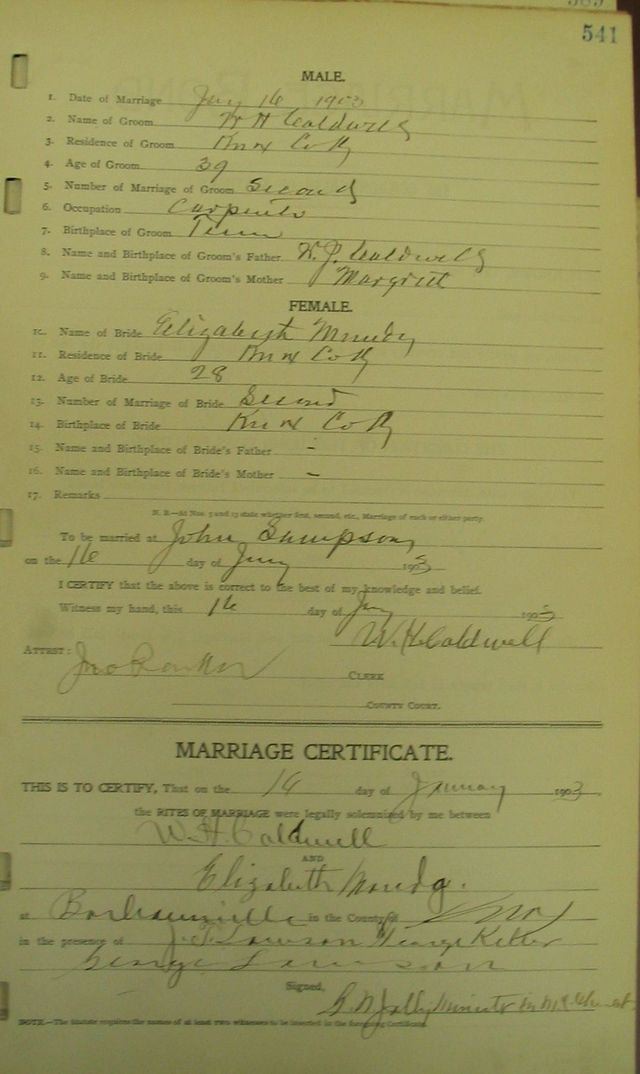 541
MALE.
1. Date of Marriage Jany 16 1903
2. Name of Groom W H Caldwell
3. Residence of Groom Knox Co Ky
4. Age of Groom 39
5. Number of Marriage of Groom Second
6. Occupation Carpenter
7. Birthplace of Groom Tenn
8. Name and Birthplace of Groom's Father W. J. Caldwell
9. Name and Birthplace of Groom's Mother Margriet
FEMALE.
10. Name of Bride Elizabeth Mundy
11. Residence of Bride Knox Co Ky
12. Age of Bride 28
13. Number of Marriage of Bride Second
14. Birthplace of Bride Knox Co Ky
15. Name and Birthplace of Bride's Father -
16. Name and Birthplace of Bride's Mother -
17. Remarks
N. B.—At Nos. 5 and 13 state whether first, second, etc., Marriage of each or either party.
To be married at John Sampsons
on the 16 day of Jany 1903
I CERTIFY that the above is correct to the best of my knowledge and belief.
Witness my hand, this 16 day of Jany 1903
W. H. Caldwell
ATTEST:
CLERK
COUNTY COURT.
MARRIAGE CERTIFICATE.
THIS IS TO CERTIFY, That on the 16 day of January 1903.
the RITES OF MARRIAGE were legally solemnized by me between
W. H. Caldwell
AND
Elizabeth Mundy.
at Barbourville in the County of Knox
in the presence of J. T. Lawson George Keller
George Lawson
Signed,
Minister in M. E. Church
NOTE.—The Statute requires the names of at least two witnesses to be inserted in the foregoing Certificate.